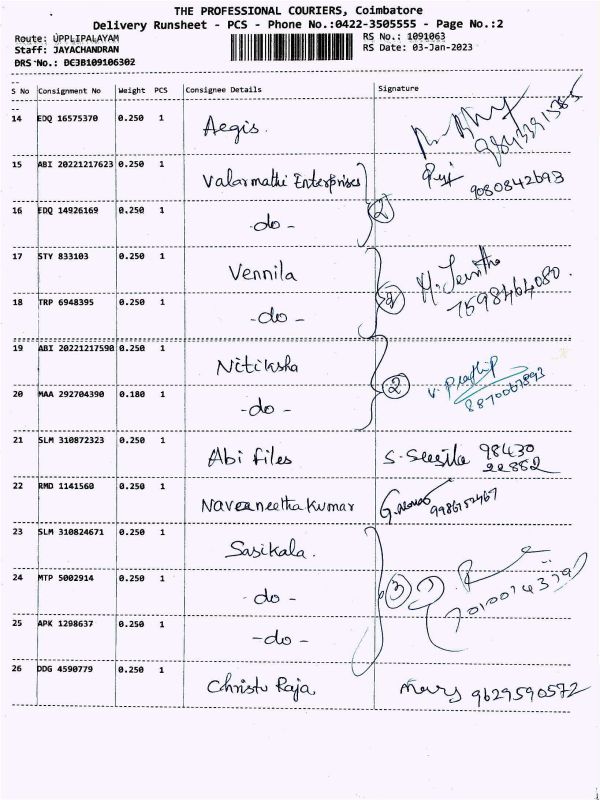 THE PROFESSIONAL COURIERS, Coimbatore
Delivery Runsheet - PCS - Phone No.:0422-3505555 - Page No.:2
Route: UPPLIPALAYAM RS No.: 1091063
Staff: JAYACHANDRAN RS Date: 03-Jan-2023
DRS No.: DCJB109106302
S No Consignment No Weight PCS Consignee Details Signature
14 EDQ 16575370 0.250 1 Aegis.
15 ABI 20221217623 0.250 1 Valarmathi Enterprises 9080842698
16 EDQ 14926169 0.250 1 -do- 2
17 STY 833103 0.250 1 Vennila
18 TRP 6948395 0.250 1 -do- 2 7598464080.
19 ABI 20221217590 0.250 1 Nitiksha
20 MAA 292704390 0.180 1 -do- 2 8870067893
21 SLM 310872323 0.250 1 Abi files 98430
22882
22 RMD 1141560 0.250 1 Navaneethakumar 9986152467
23 SLM 310824671 0.250 1 Sasikala.
24 MTP 5002914 0.250 1 -do- 3
25 APK 1298637 0.250 1 -do-
26 DDG 4590779 0.250 1 Christu Raja Mary 9629590572